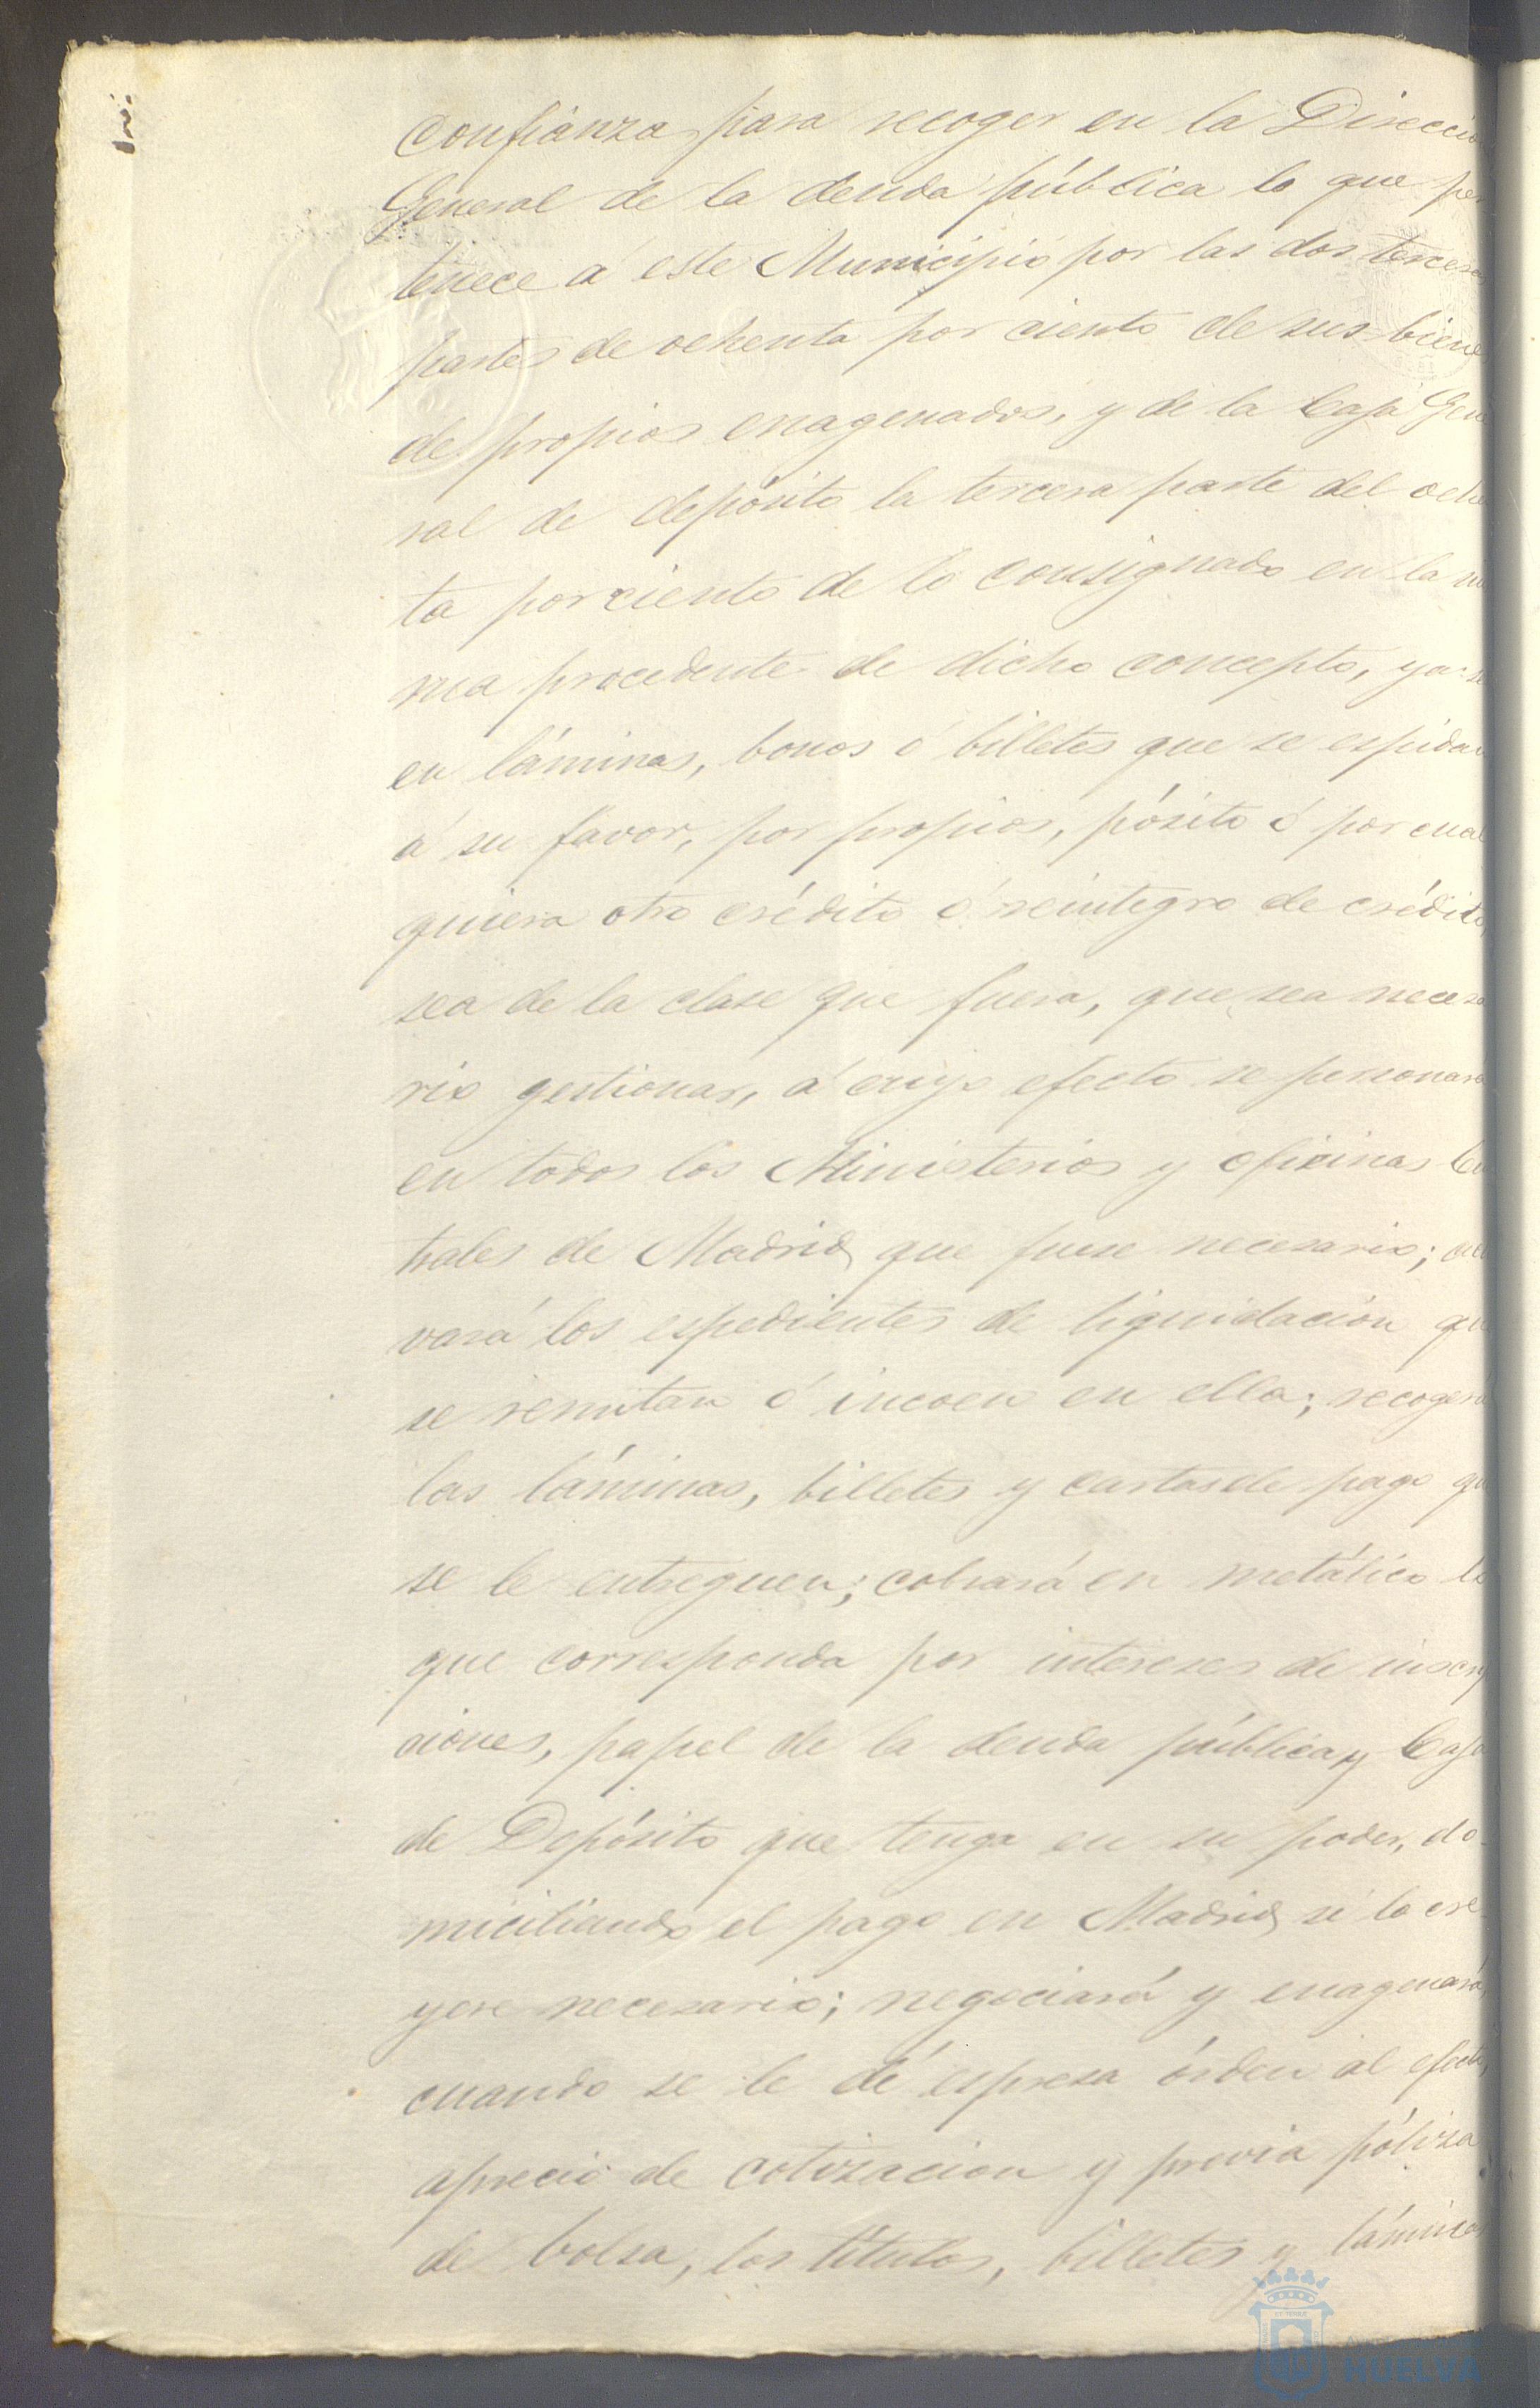 confianza para recoger en la Direccio
General de la deuda pública lo que per
tenece á este Municipio por las dos terceras
partes de ochenta por ciento de sus biene
de propios enagenados, y de la Caja Gene
ral de depósito la tercera parte del oche
ta por ciento de lo consignado en la mi
ma procedente de dicho concepto, ya se
en láminas, bonos ó billetes que se espidan
á su favor, por propios, pósito ó por cual
quiera otro crédito ó reintegro de crédito,
sea de la clase que fuera, que sea necesa
rio gestionar, á cuyo efecto se personara
en todos los Ministerios y oficinas Cen
trales de Madrid que fuese necesario; acti
vará los espedientes de liquidacion que
se remitan ó incoen en ella; recogerá
las láminas, billetes y cartas de pago qu
se le entreguen; cobrará en metálico lo
que corresponda por intereses de inscrip
ciones, papel de la deuda pública y Caja
de Depósito que tenga en su poder, do-
miciliando el pago en Madrid si lo cre-
yere necesario; negociará y enagenará,
cuando se le dé espresa órden al efecto,
aprecio de cotizacion y previa póliza
de bolsa, los títulos, billetes y láminas
HUELVA